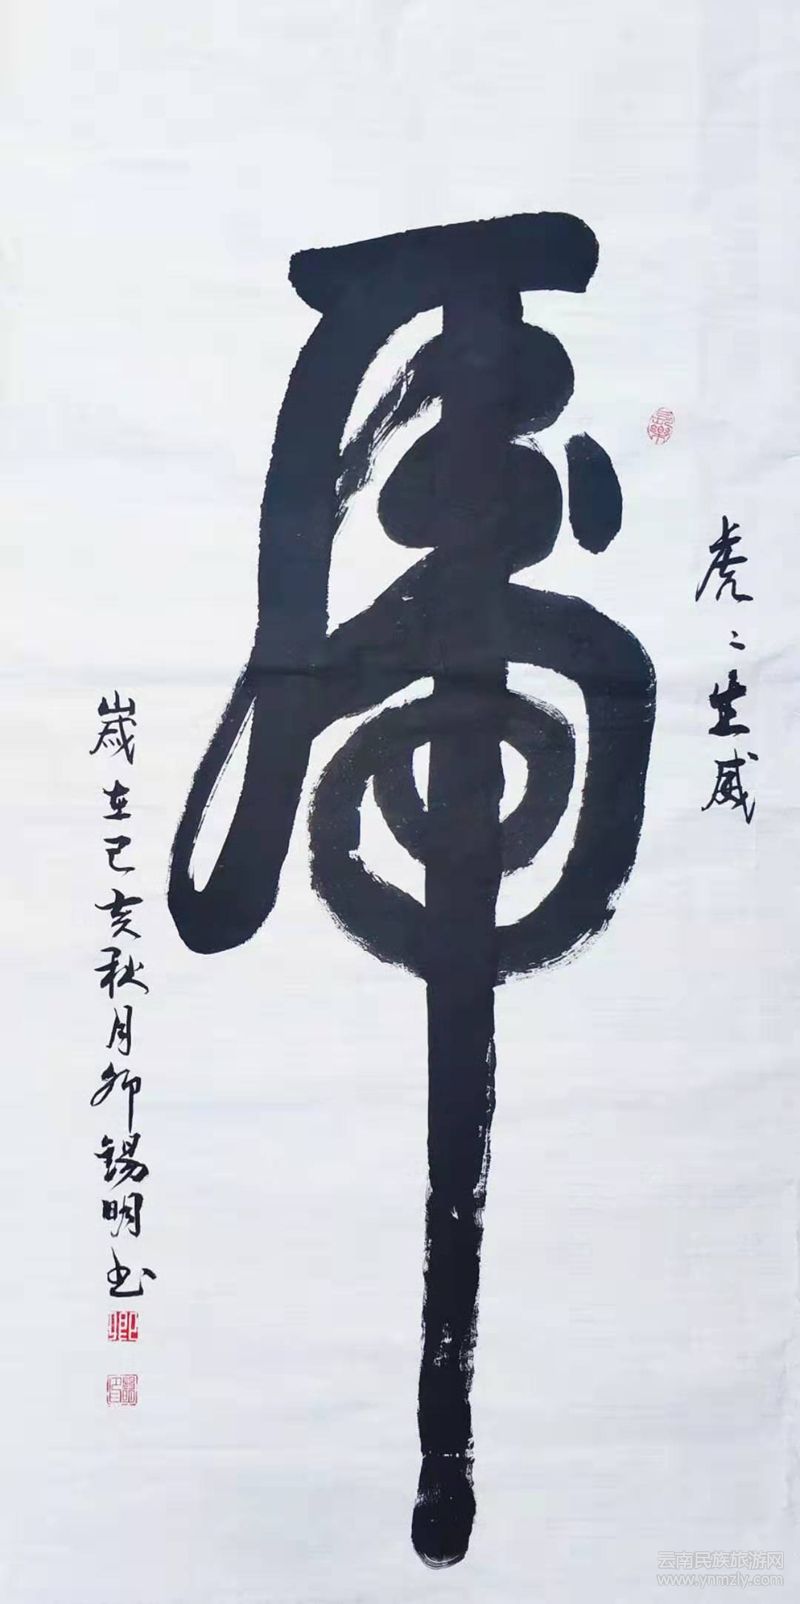 虎〻生威
虎
歲在己亥秋月卿錫明书
云南民族旅游网
www.ynmzly.com